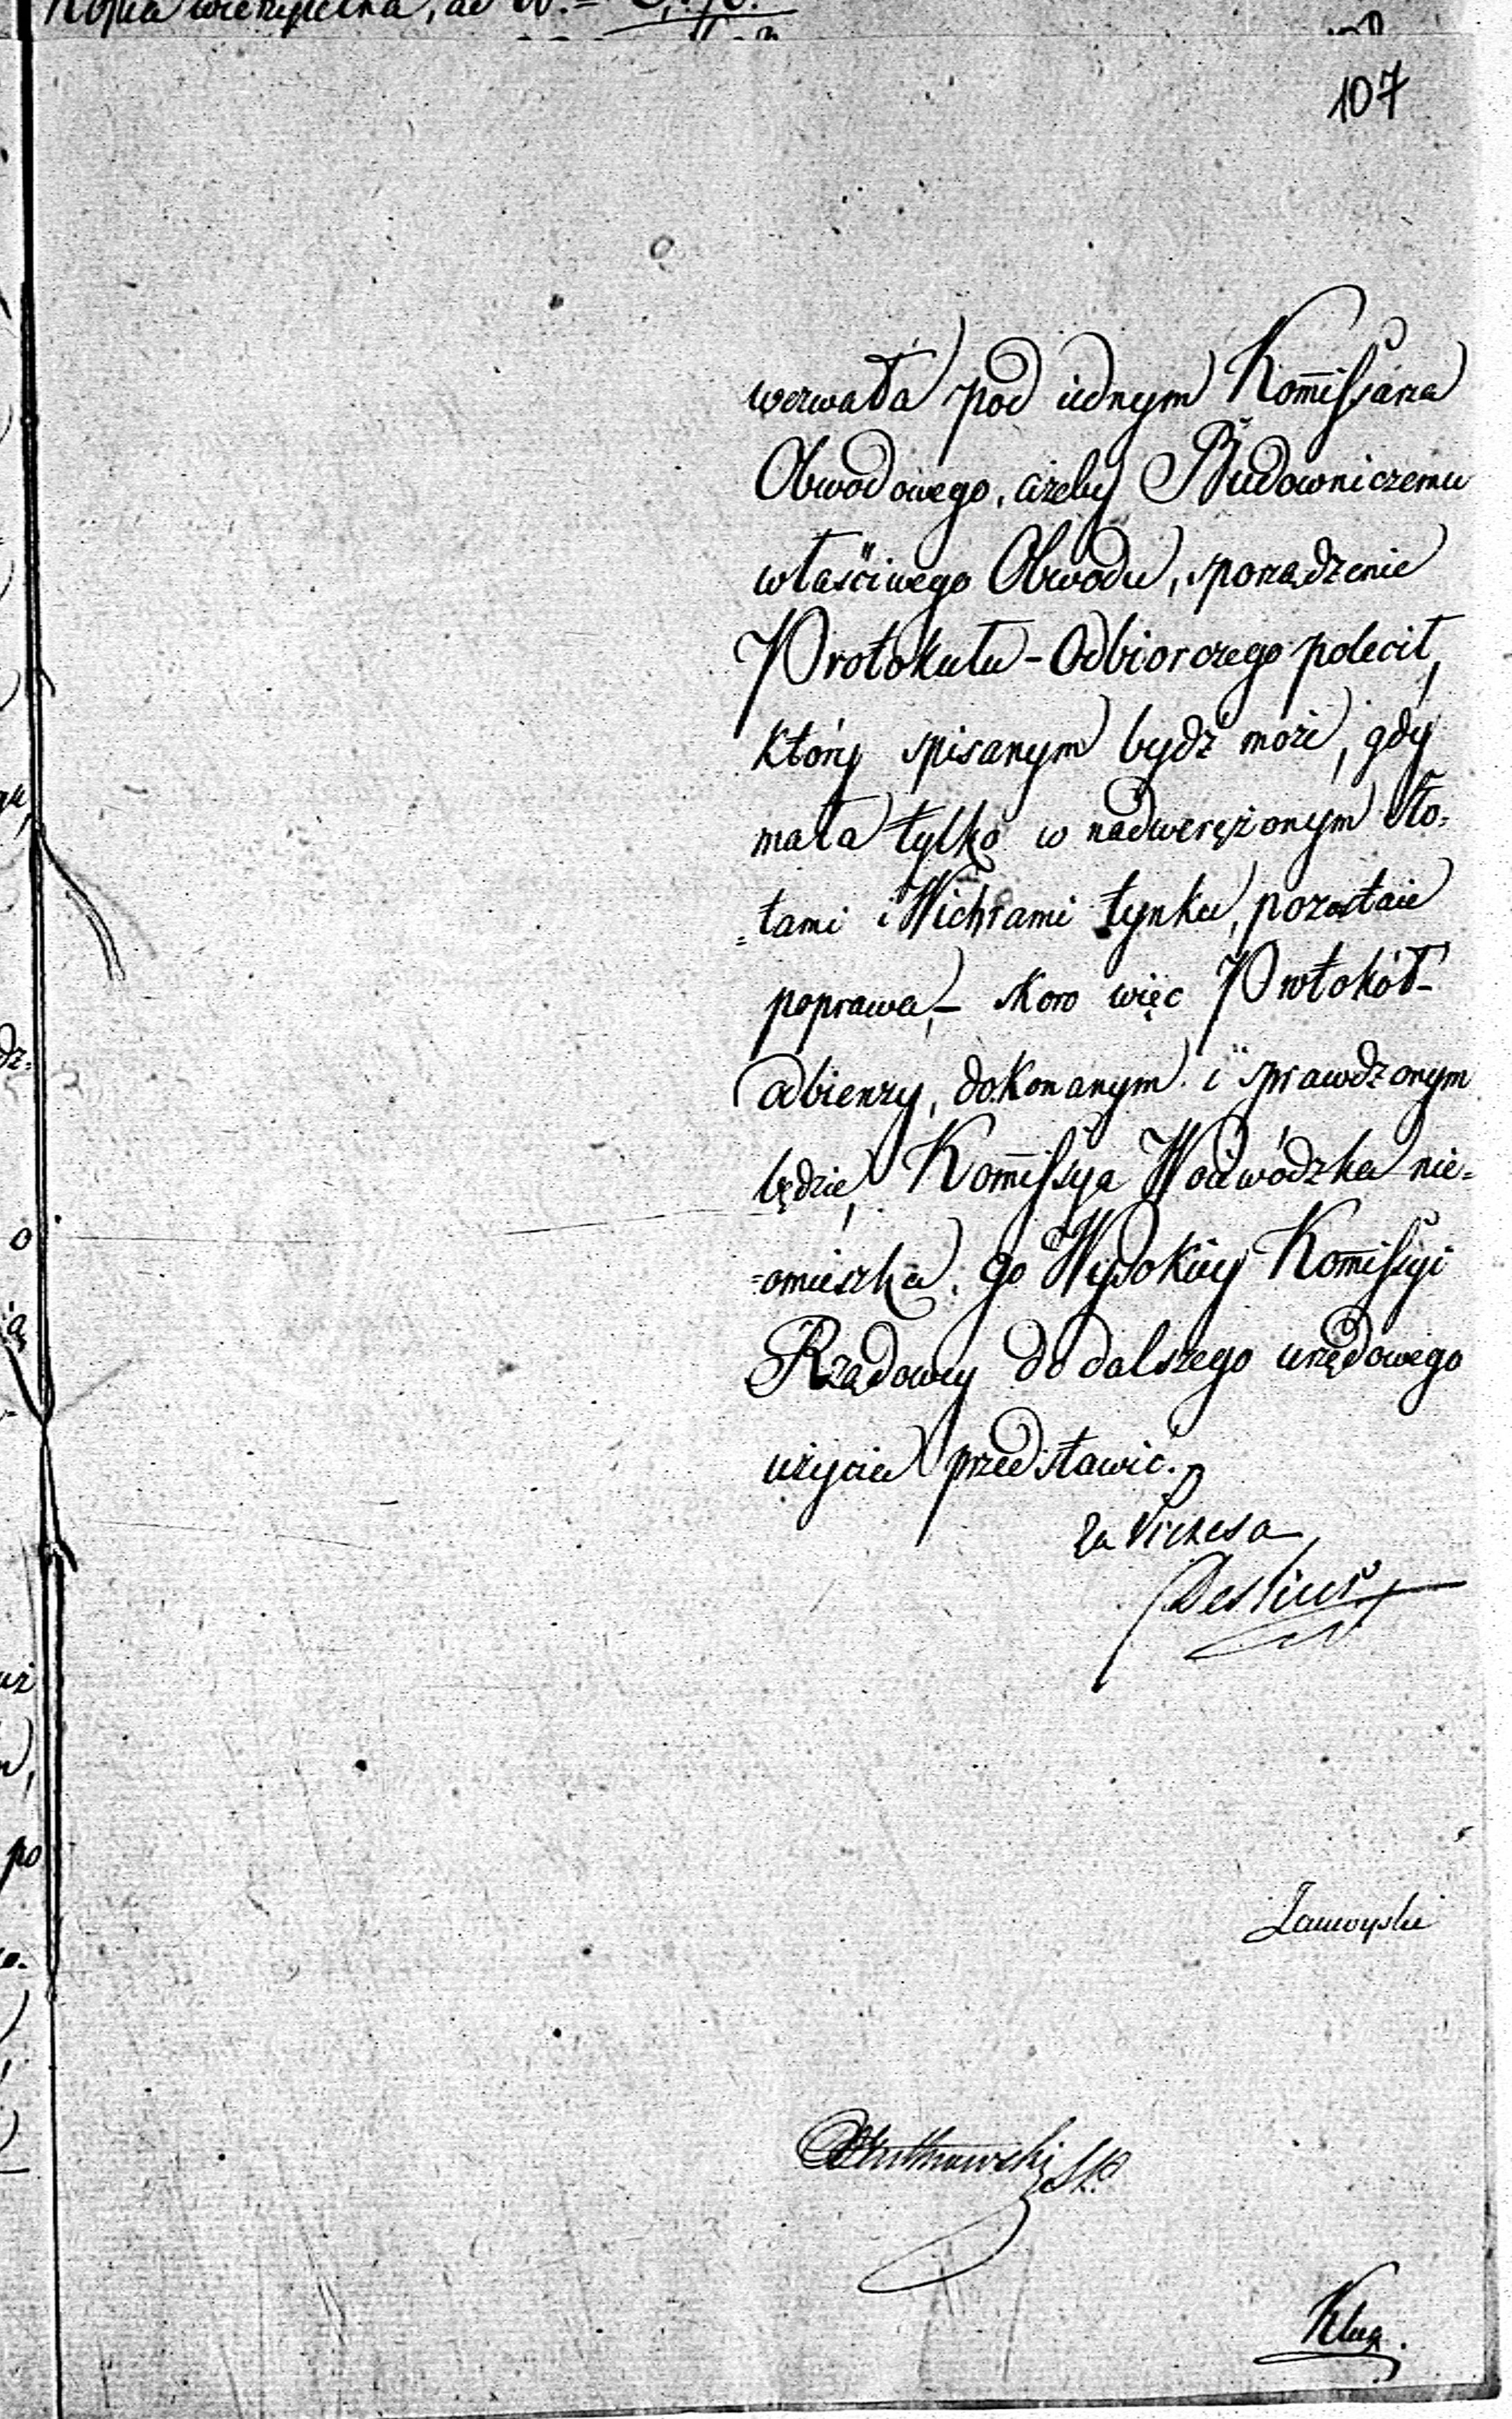 107
wezwała pod iednym Kom̄issarza
Obwodowego, ażeby Budowniczemu
właściwego Obwodu, sporządzenie
Protokułu-Odbiorczego polecił,
który spisanym bydź może, gdy
mała tylko w nadwerężonym sło=
=tami i Wichrami tynku, pozostaie
poprawa,- skoro więc Protokół-
odbierzy, dokonanym i sprawdzonym
będzie, Kom̄issya Woiewódzka nie=
=omieszka, go Wysokiey Kom̄issyi
Rządowey do dalszego urzędowego
użycia przedstawić.
Za Prezesa
Zamoyski
SK.
Klug.